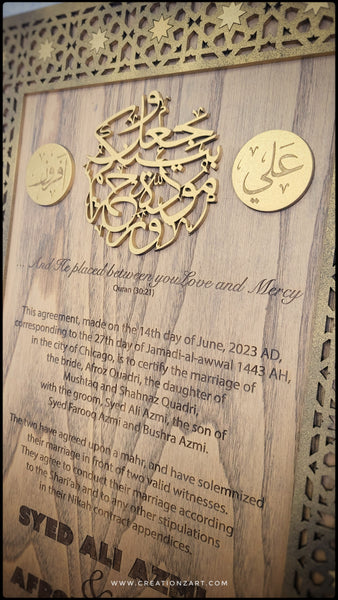 وجعل بينكم مودة ورحمة
علي
... And He placed between you Love and Mercy
Quran (30:21)
This agreement, made on the 14th day of June, 2023 AD,
corresponding to the 27th day of Jamadi-al-awwal 1443 AH,
in the city of Chicago, is to certify the marriage of
the bride, Afroz Quadri, the daughter of
Mushtaq and Shahnaz Quadri,
with the groom, Syed Ali Azmi, the son of
Syed Farooq Azmi and Bushra Azmi.
The two have agreed upon a mahr, and have solemnized
their marriage in front of two valid witnesses.
They agree to conduct their marriage according
to the Shari'ah and to any other stipulations
in their Nikah contract appendices.
SYED ALI AZMI
&
AFRO
WWW.CREATIONZART.COM